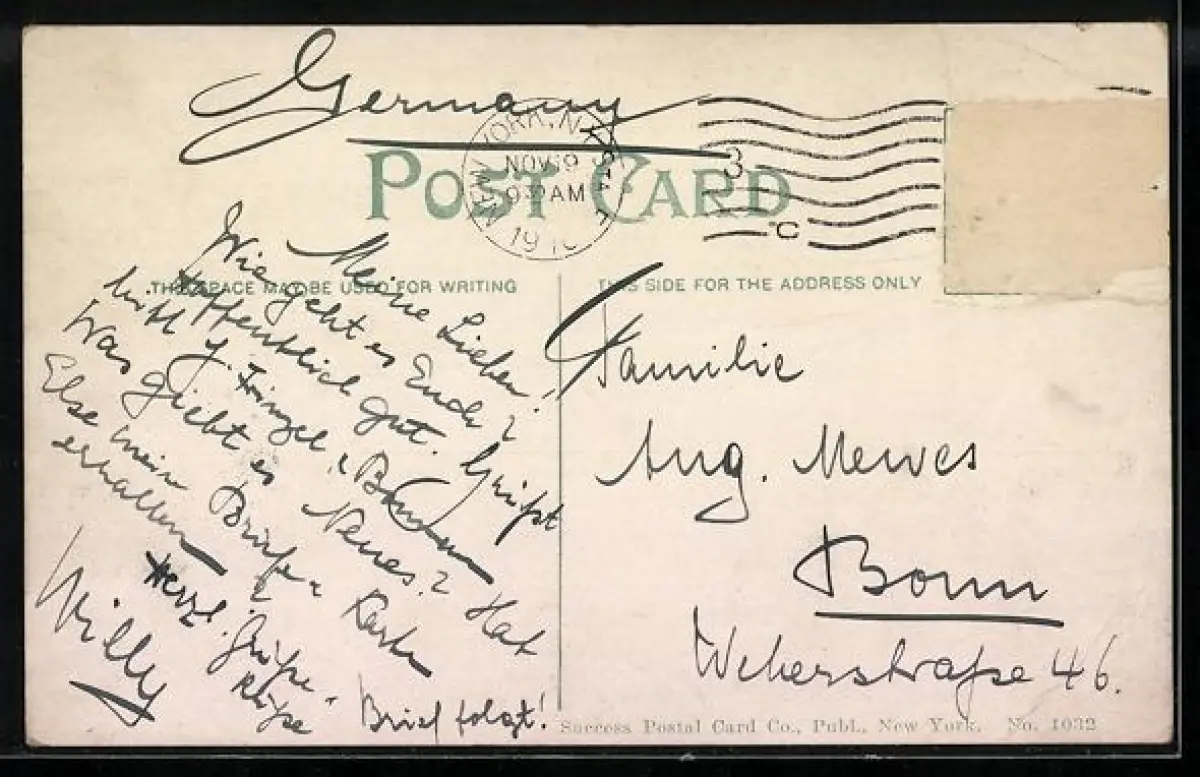 Germany
POST CARD
NEW YORK, N.Y.
NOV 9
930 AM
19
3
C
THIS SPACE MAY BE USED FOR WRITING
THIS SIDE FOR THE ADDRESS ONLY
Meine Lieben!
Wie geht es Euch?
Hoffentlich gut. Grüßt
bitte
Was giebt es Neues? Hat
Else mein Briefe u Karte
erhalten
Herzl. Grüße u
Küße
Willy
Brief folgt!
Familie
Aug. Mewes
Bonn
Weberstraße 46.
Success Postal Card Co., Publ., New York. No. 1032